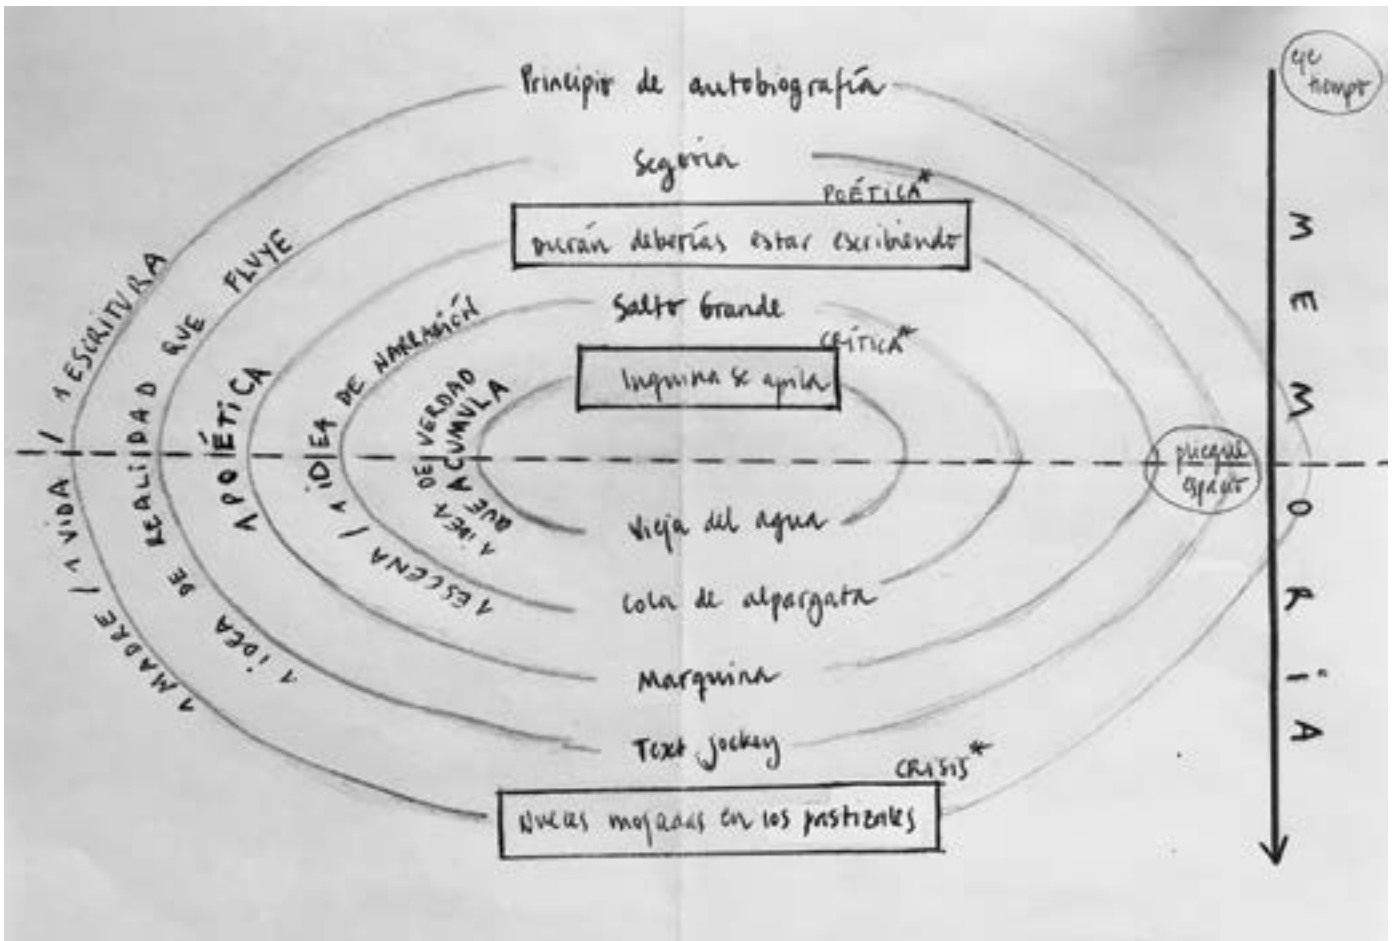 eje
tiempo
Principio de autobiografía
Segovia
POÉTICA*
Durán deberías estar escribiendo
Salto Grande
CRÍTICA*
Inquina se apila
Vieja del agua
Cola de alpargata
Marquina
Text jockey
CRISIS*
Nueces mojadas en los pastizales
1 MADRE / 1 VIDA / 1 ESCRITURA
1 IDEA DE REALIDAD QUE FLUYE
1 POÉTICA
1 ESCENA / 1 IDEA DE NARRACIÓN
1 IDEA DE VERDAD
QUE ACUMULA
pliegue
espacio
MEMORÍA